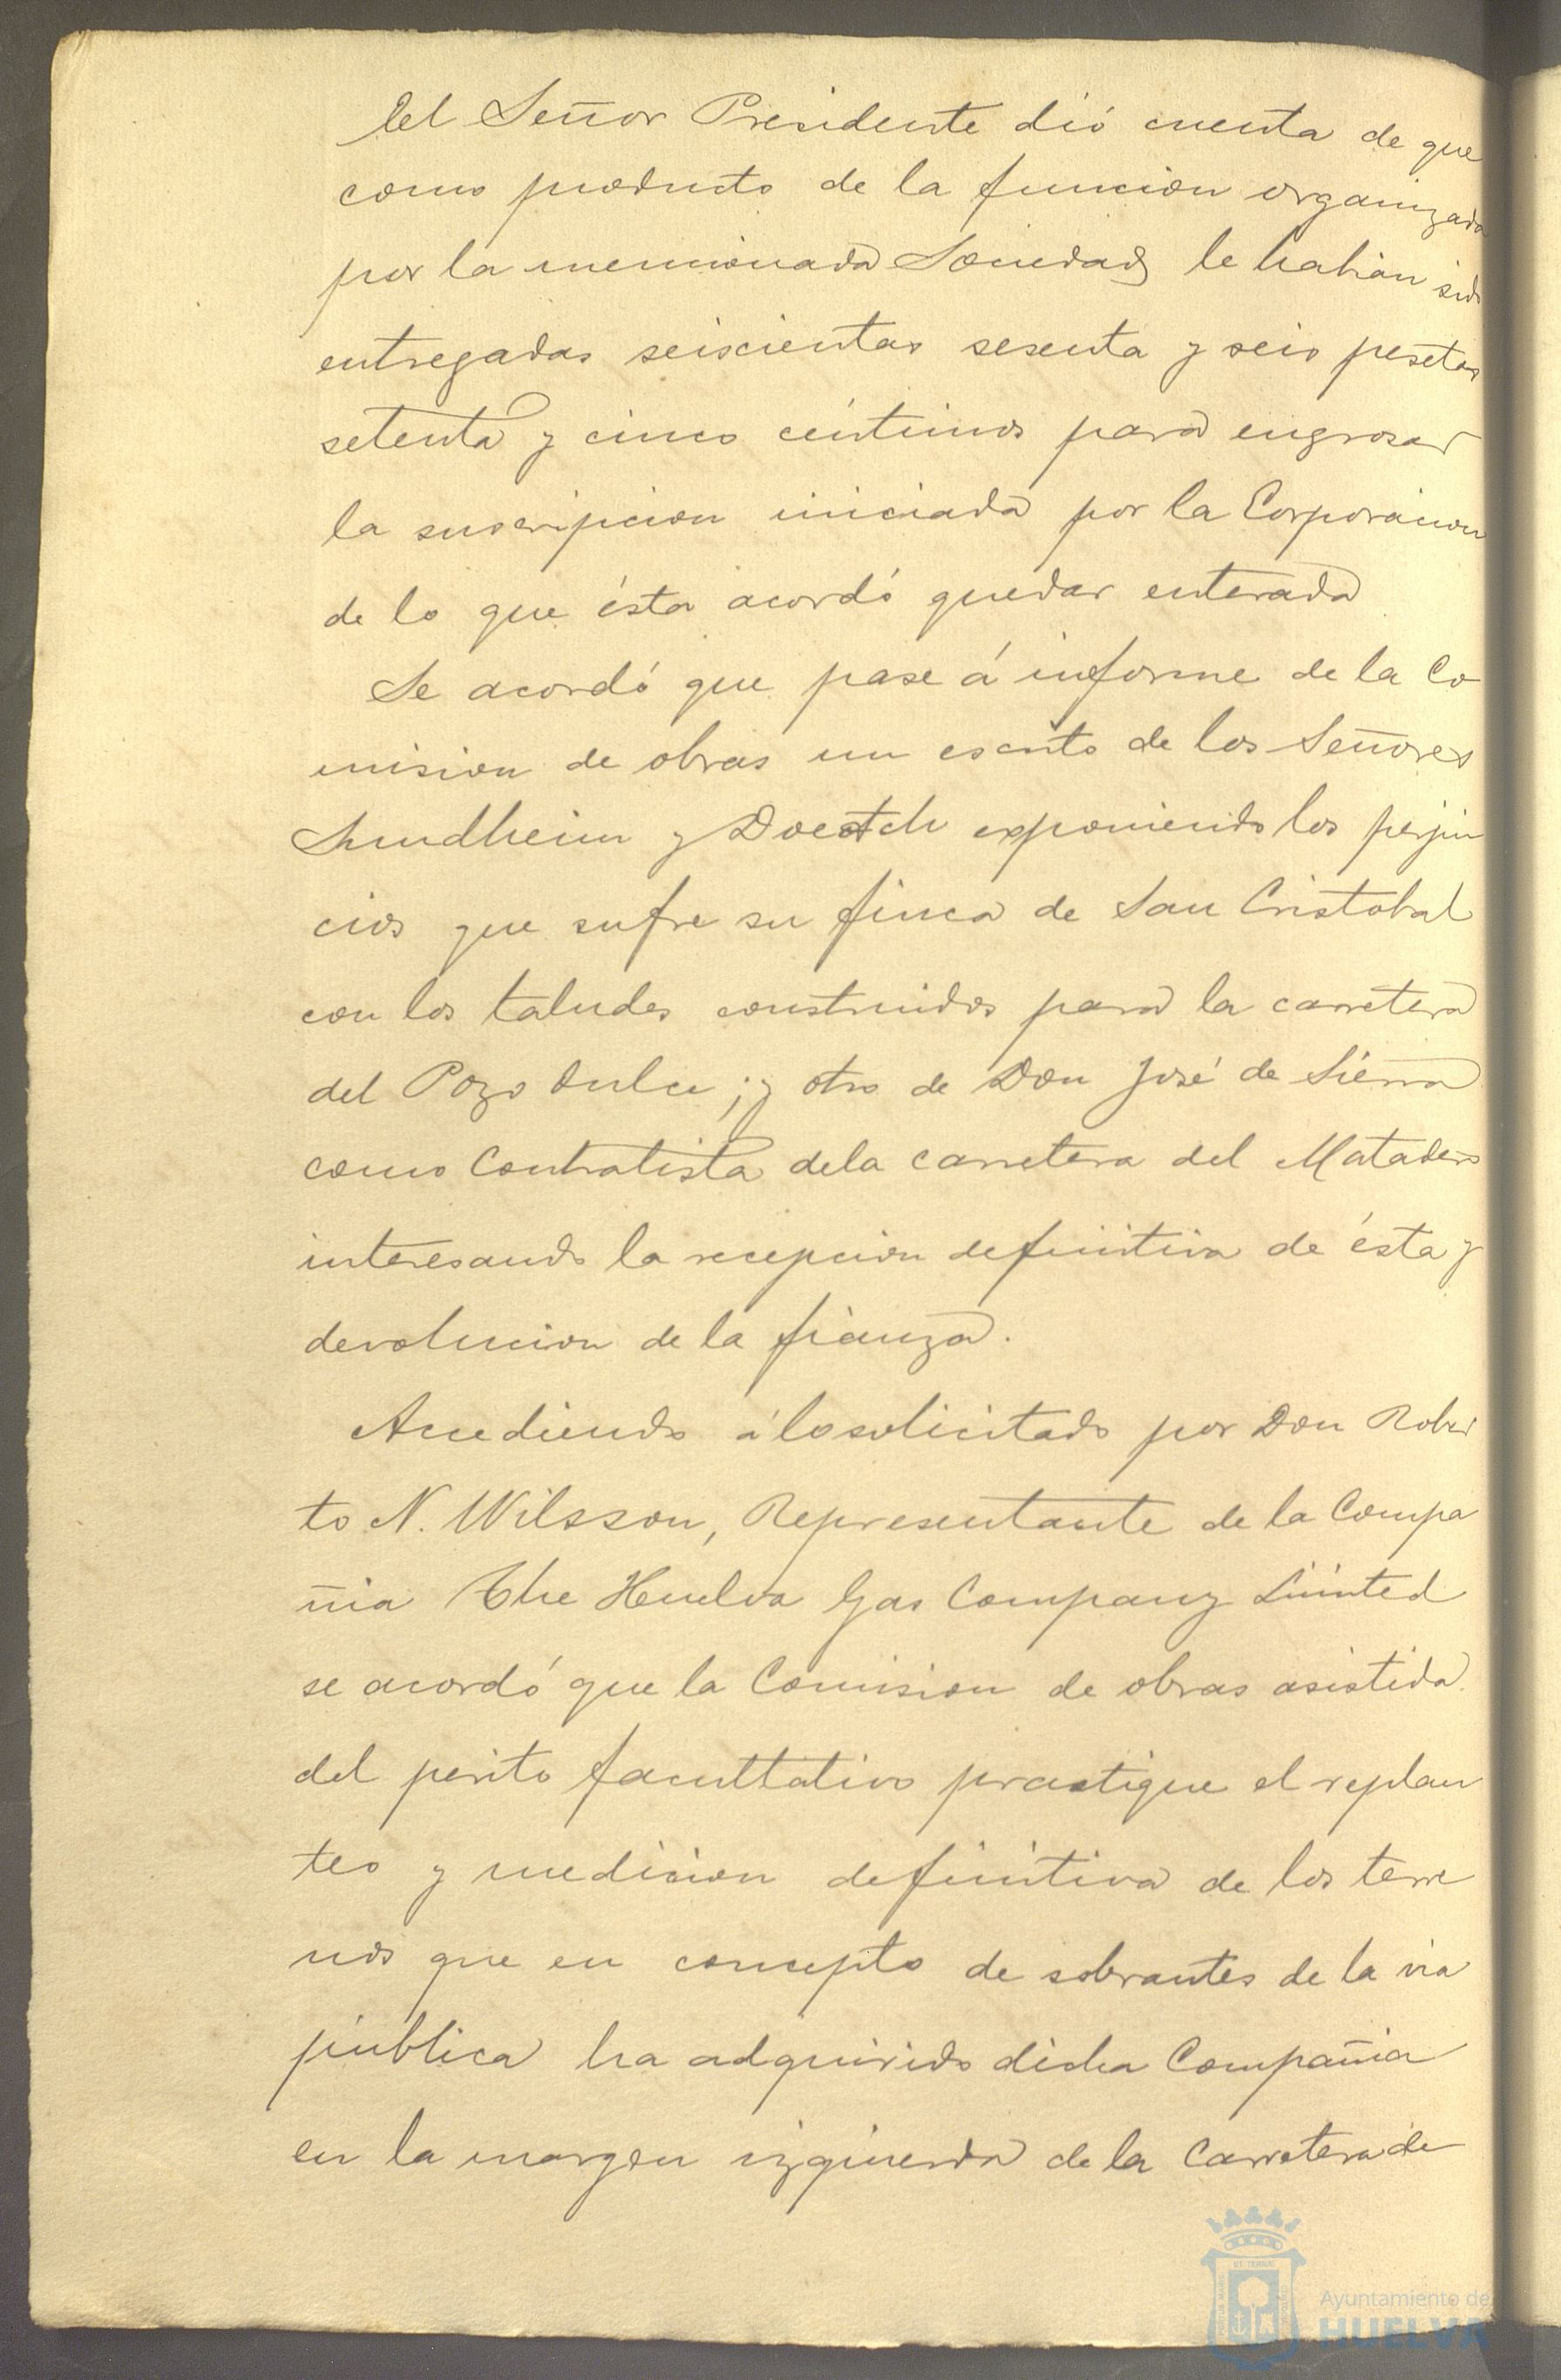 El Señor Presidente dió cuenta de que
como producto de la funcion organizada
por la mencionada Sociedad le habian sido
entregadas seiscientas sesenta y seis pesetas
setenta y cinco céntimos para engrosar
la suscripcion iniciada por la Corporacion
de lo que ésta acordó quedar enterada
Se acordó que pase á informe de la Co
mision de obras un escrito de los Señores
Sundheim y Doestch exponiendo los perjui
cios que sufre su finca de San Cristobal
con los taludes construidos para la carretera
del Pozo dulce; y otro de Don José de Sierra
como Contratista dela carretera del Matadero
interesando la recepcion definitiva de ésta y
devolucion de la fianza.
Accediendo á lo solicitado por Don Rober
to N. Wilsson, Representante de la Compa
ñia The Huelva Gas Company Limited
se acordó que la Comision de obras asistida
del perito facultativo practique el replan
teo y medicion definitiva de los terre
nos que en concepto de sobrantes de la via
pública ha adquirido dicha Compañia
en la margen izquierda de la Carretera de
Ayuntamiento de
HUELVA